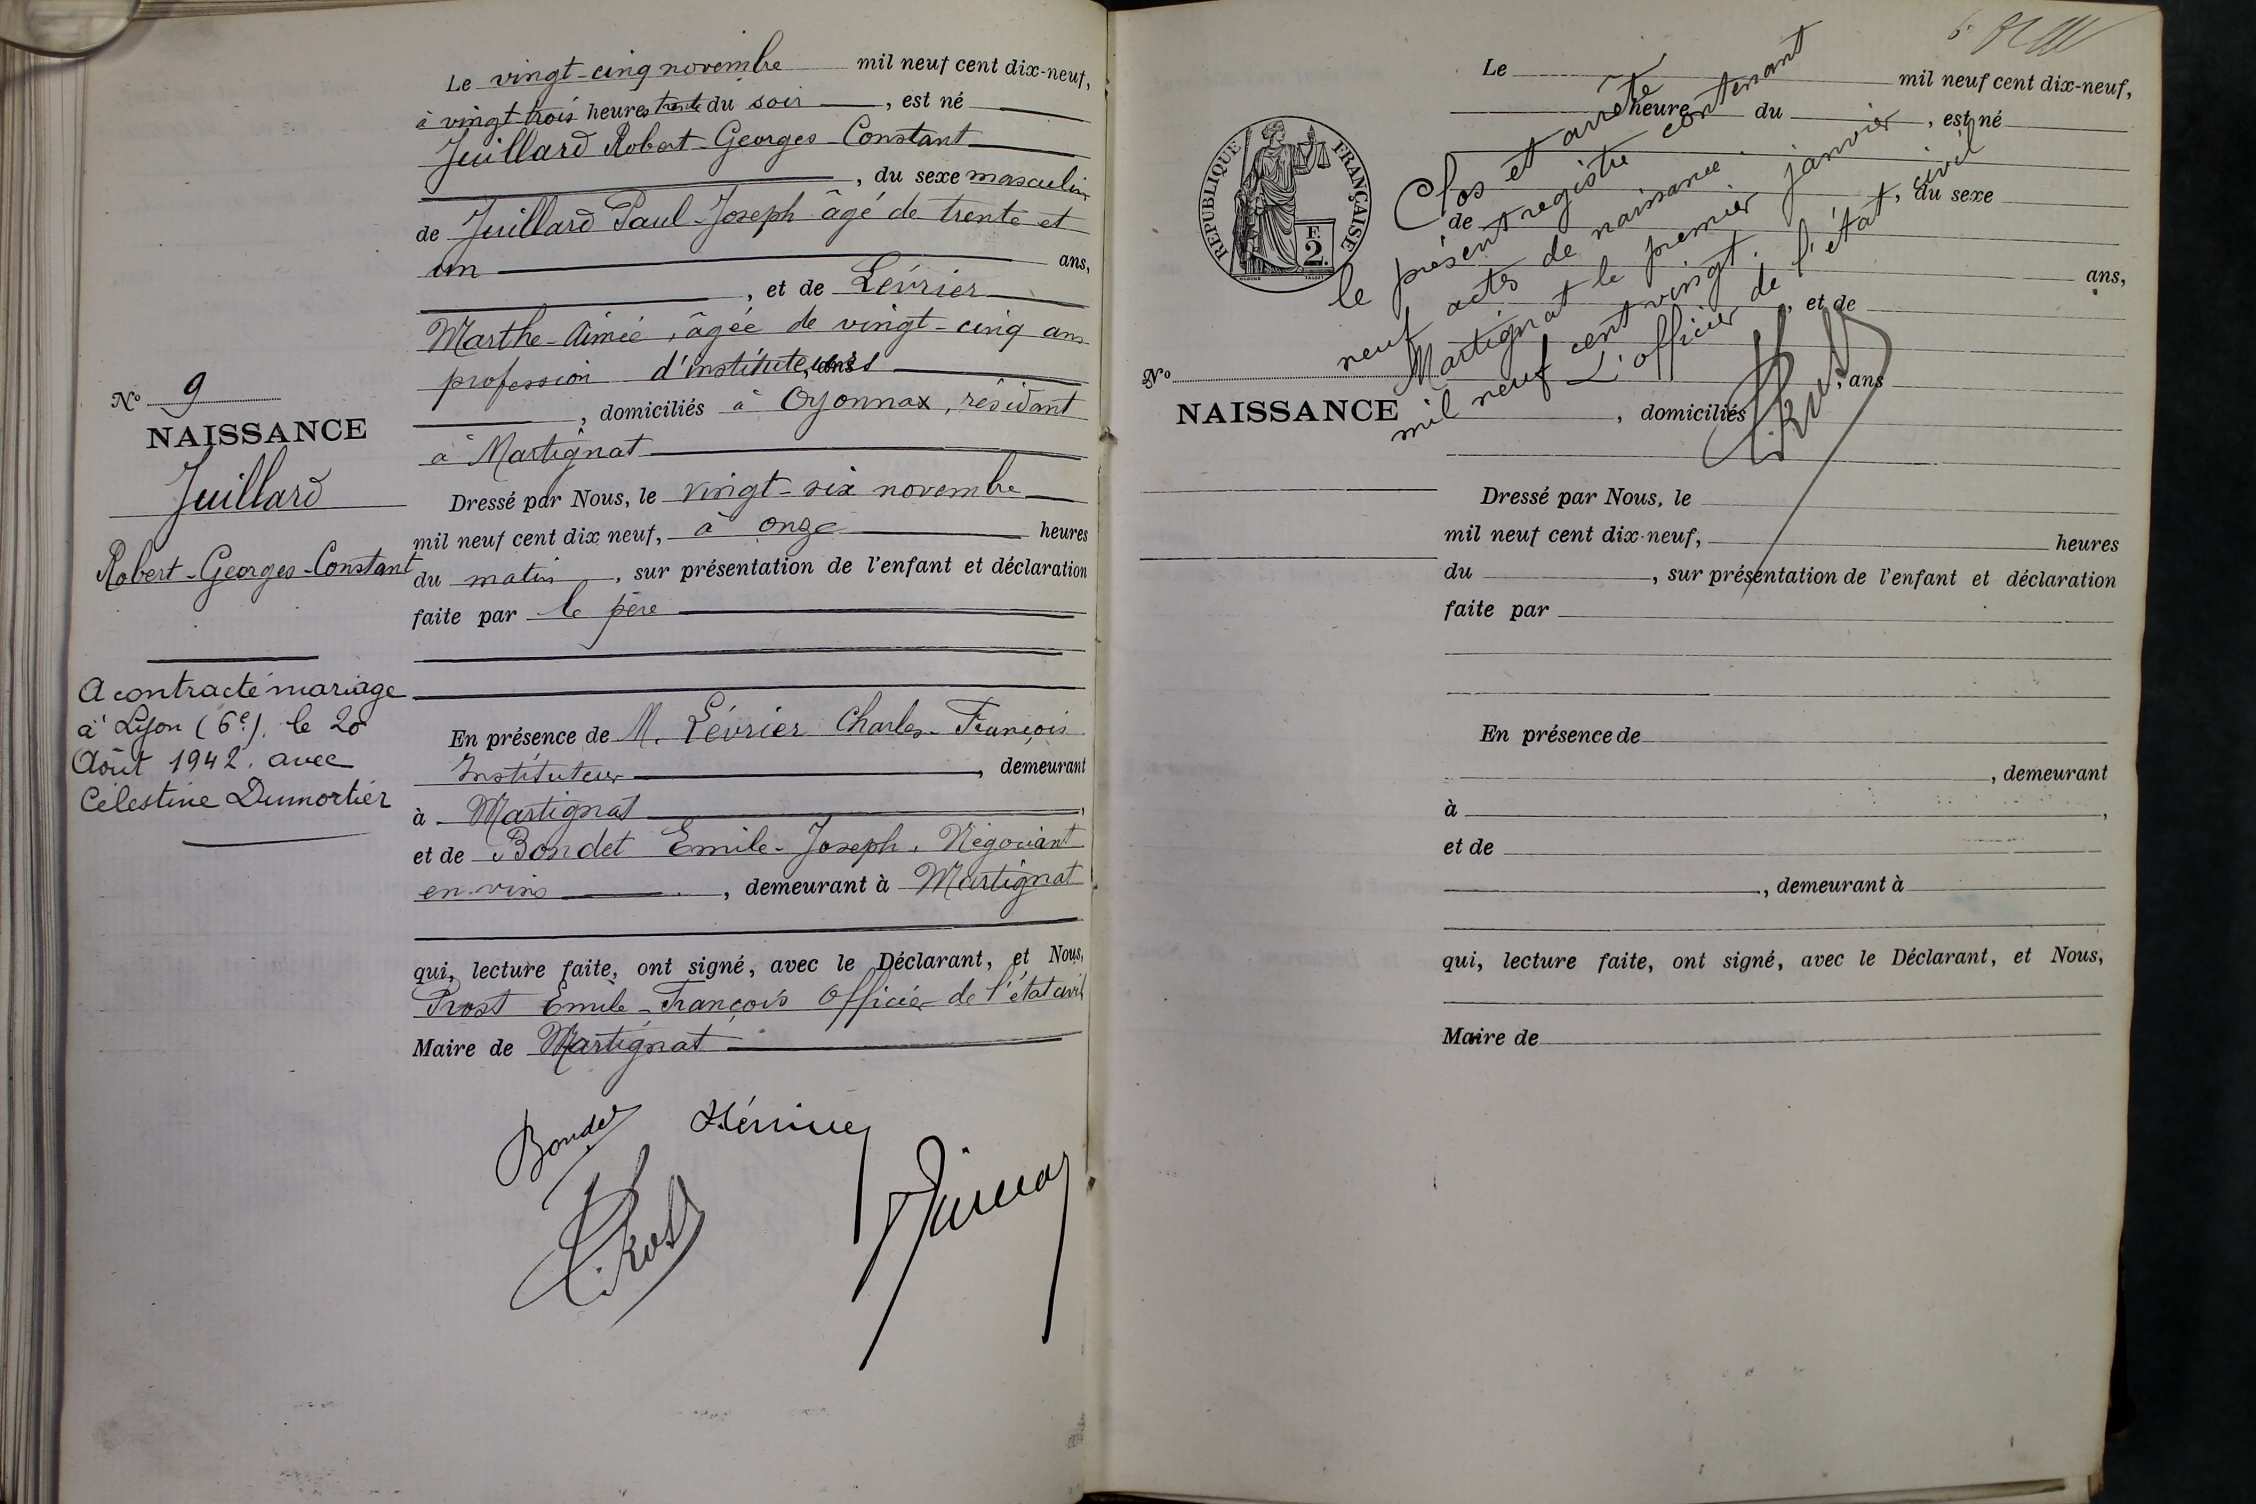 Le vingt-cinq novembre mil neuf cent dix-neuf,
à vingt trois heures trente du soir, est né
Juillard Robert-Georges-Constant
, du sexe masculin
de Juillard Paul-Joseph âgé de trente et
un ans,
, et de Lévrier
Marthe-Aimée, âgée de vingt-cinq ans
profession d'instituteurs
, domiciliés à Oyonnax, résidant
à Martignat
No 9
NAISSANCE
Juillard
Robert-Georges-Constant
Dressé par Nous, le vingt-six novembre
mil neuf cent dix neuf, à onze heures
du matin, sur présentation de l'enfant et déclaration
faite par le père
A contracté mariage
à Lyon (6e). le 20
Août 1942. avec
Célestine Dumortier
En présence de M. Lévrier Charles-François
Instituteur, demeurant
à Martignat,
et de Bondet Emile-Joseph, Négociant
en vins, demeurant à Martignat
qui, lecture faite, ont signé, avec le Déclarant, et Nous,
Prost Emile-François Officier de l'état civil
Maire de Martignat
Bondet
Prost
Le mil neuf cent dix-neuf,
heure du, est né
, du sexe
de
ans,
, et de
, ans
, domiciliés
REPUBLIQUE FRANÇAISE
F.
2.
Clos et arrêté
le présent registre contenant
neuf actes de naissance.
Martignat le premier janvier
mil neuf cent vingt.
L'officier de l'état civil
Prost
No
NAISSANCE
Dressé par Nous, le
mil neuf cent dix-neuf, heures
du, sur présentation de l'enfant et déclaration
faite par
En présence de
, demeurant
à,
et de
, demeurant à
qui, lecture faite, ont signé, avec le Déclarant, et Nous,
Maire de